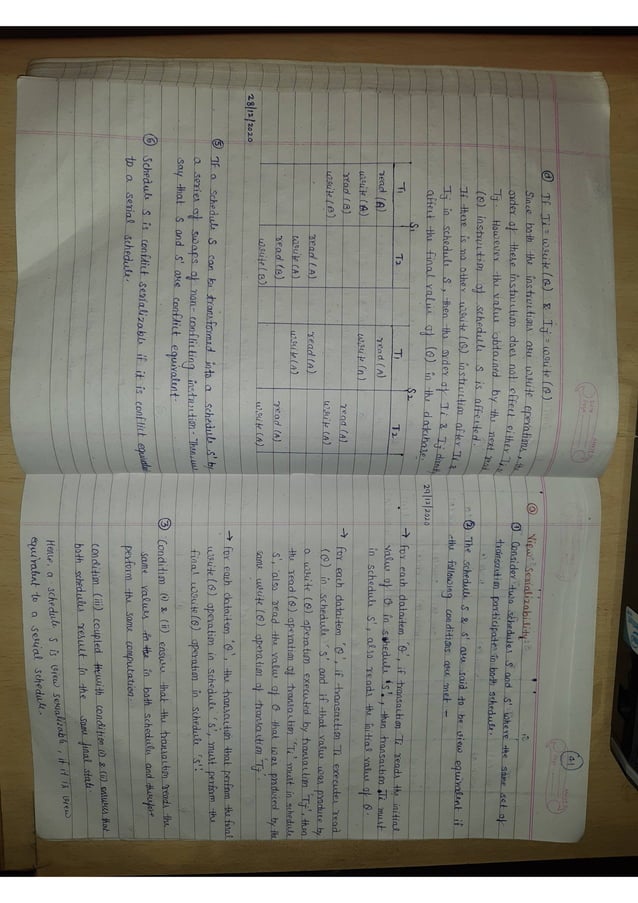 ④ If Ii = write (Q) & Ij = write (Q)
Since both the instructions are write operations, the
order of these instruction does not effect either Ti &
Tj. However the value obtained by the next read
(Q) instruction of schedule S is affected.
If there is no other write (Q) instruction after Ii &
Ij in schedule S, then the order of Ii & Ij directly
affect the final value of (Q) in the database.
S1 S2
T1 T2 T1 T2
read (A) read (A)
write (A) write (A)
read (B) read (A)
write (B) write (A)
read (A) read (A)
write (A) write (A)
read (B) read (A)
write (B) write (A)
28/12/2020
⑤ If a schedule S can be transformed into a schedule S' by
a series of swaps of non-conflicting instruction. Then we
say that S and S' are conflict equivalent.
⑥ Schedule S is conflict serializable if it is conflict equivalent
to a serial schedule.
41
29/12/2020
View Serializability :-
① Consider two schedules S and S' where the same set of
transaction participate in both schedule.
② The schedule S & S' are said to be view equivalent if
the following conditions are met -
→ For each dataitem 'Q', if transaction Ti reads the initial
value of Q in schedule 'S', then transaction Ti must
in schedule S', also reads the initial value of Q.
→ For each dataitem 'Q', if transaction Ti executes read
(Q) in schedule 'S' and if that value was produce by
a write (Q) operation executed by transaction 'Tj', then
the read (Q) operation of transaction Ti must in schedule
S', also read the value of Q that was produced by the
same write (Q) operation of transaction Tj.
→ For each dataitem 'Q', the transaction that perform the final
write (Q) operation in schedule 'S', must perform the
final write (Q) operation in schedule 'S''
③ Condition (i) & (ii) ensure that the transaction reads the
same values in the in both schedule and therefore
perform the same computation.
condition (iii) coupled with condition (i) & (ii) ensures that
both schedules result in the same final state.
Hence, a schedule S is view serializable, if it is view
equivalent to a serial schedule.